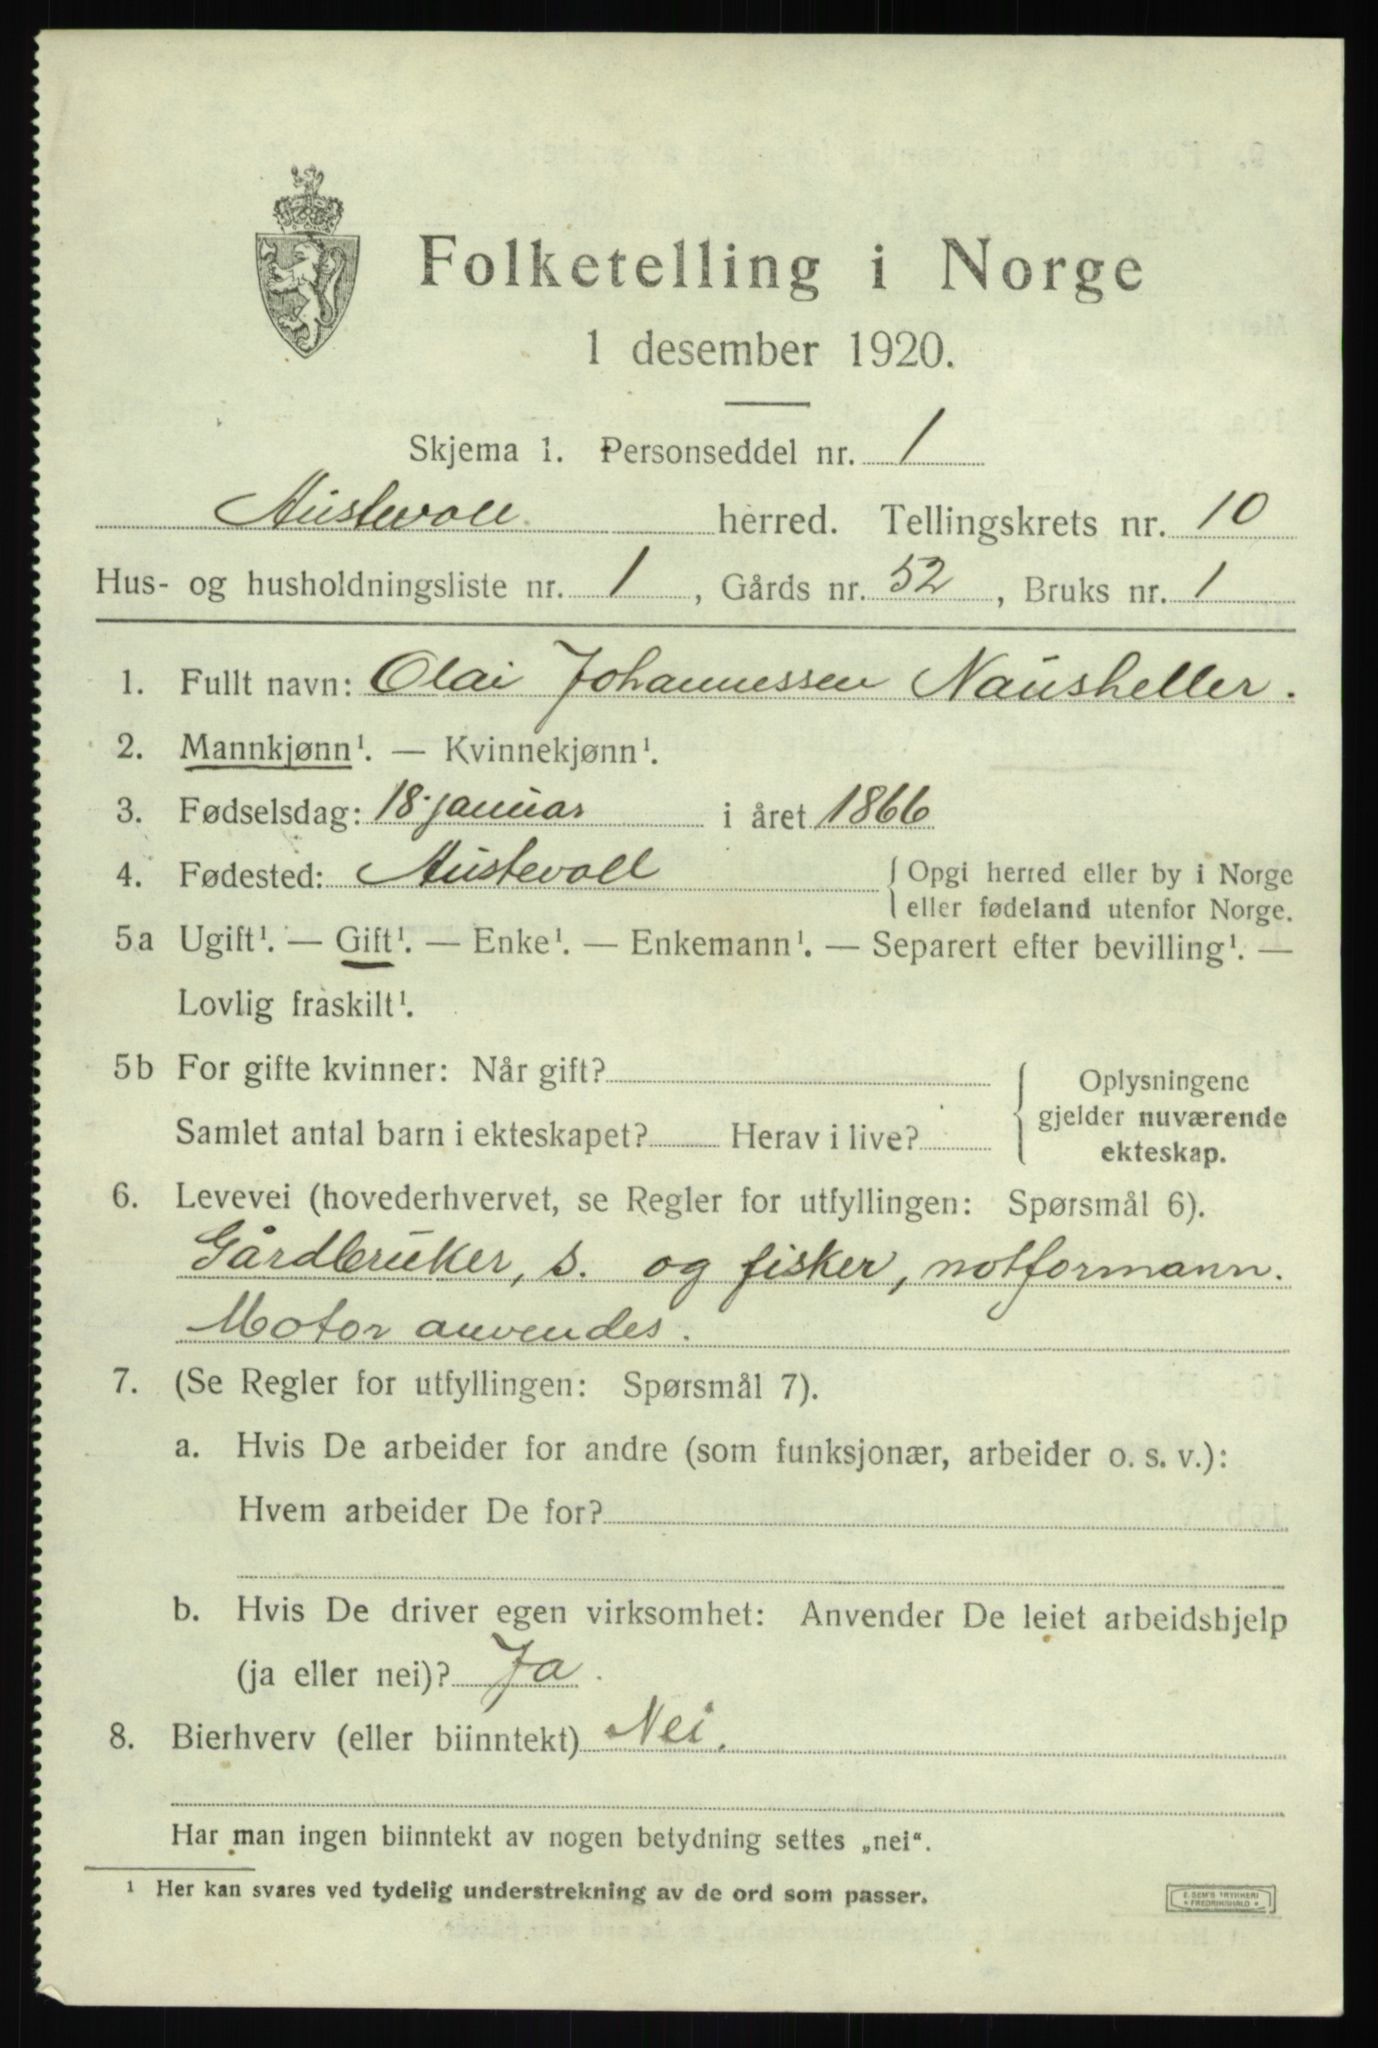 Folketelling i Norge
1 desember 1920.
Skjema 1. Personseddel nr. 1
Austevoll herred. Tellingskrets nr. 10
Hus- og husholdningsliste nr. 1, Gårds nr. 52, Bruks nr. 1
1. Fullt navn: Olai Johannessen Nausheller.
2. Mannkjønn¹. — Kvinnekjønn¹.
3. Fødselsdag: 18. januar i året 1866
4. Fødested: Austevoll { Opgi herred eller by i Norge
eller fødeland utenfor Norge.
5a Ugift¹. — Gift¹. — Enke¹. — Enkemann¹. — Separert efter bevilling¹. —
Lovlig fraskilt¹.
5b For gifte kvinner: Når gift?
Samlet antal barn i ekteskapet? Herav i live?
{ Oplysningene
gjelder nuværende
ekteskap.
6. Levevei (hovederhvervet, se Regler for utfyllingen: Spørsmål 6).
Gårdbruker, s. og fisker, notformann.
Motor anvendes.
7. (Se Regler for utfyllingen: Spørsmål 7).
a. Hvis De arbeider for andre (som funksjonær, arbeider o. s. v.):
Hvem arbeider De for?
b. Hvis De driver egen virksomhet: Anvender De leiet arbeidshjelp
(ja eller nei)? Ja.
8. Bierhverv (eller biinntekt) Nei.
Har man ingen biinntekt av nogen betydning settes „nei“.
¹ Her kan svares ved tydelig understrekning av de ord som passer.
E. SEM'S TRYKKERI
* FREDRIKSHALD *